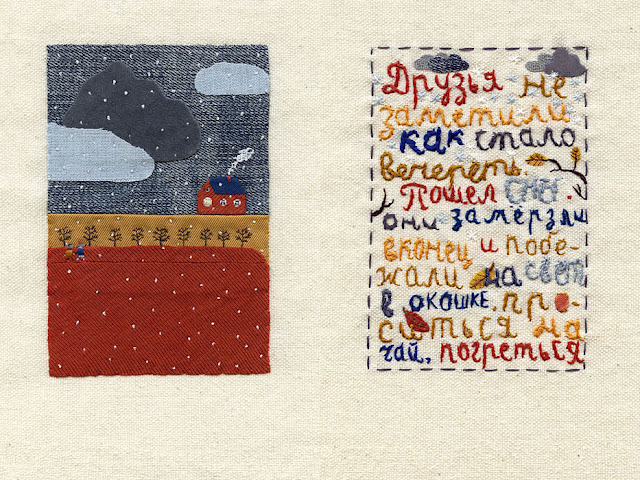 Друзья не
заметили
как стало
вечереть.
Пошел снег.
они замерзли
вконец и побе-
жали на свет
в окошке. про-
ситься на
чай, погреться